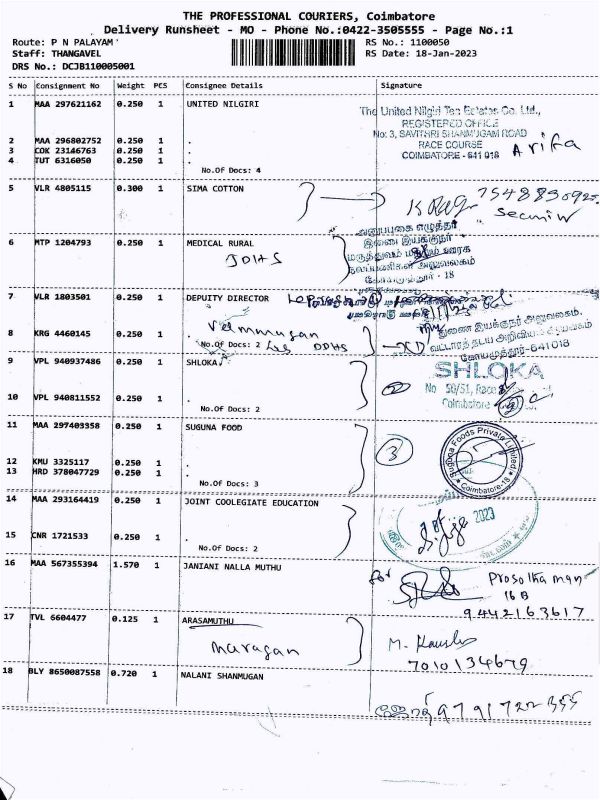 THE PROFESSIONAL COURIERS, Coimbatore
Delivery Runsheet - MO - Phone No.:0422-3505555 - Page No.:1
Route: P N PALAYAM RS No.: 1100050
Staff: THANGAVEL RS Date: 18-Jan-2023
DRS No.: DCJB110005001
S No Consignment No Weight PCS Consignee Details Signature
1 MAA 297621162 0.250 1 UNITED NILGIRI
The United Nilgiri Tea Estates Co. Ltd.,
REGISTERED OFFICE
No: 3, SAVITHRI SHANMUGAM ROAD
RACE COURSE
COIMBATORE - 641 018
Arifa
2 MAA 296802752 0.250 1 .
3 COK 23146763 0.250 1 .
4 TUT 6316050 0.250 1 .
No.Of Docs: 4
5 VLR 4805115 0.300 1 SIMA COTTON
6 MTP 1204793 0.250 1 MEDICAL RURAL
JDHS
இணை இயக்குநர்
7 VLR 1803501 0.250 1 DEPUITY DIRECTOR
8 KRG 4460145 0.250 1 .
No.Of Docs: 2
DDHS
9 VPL 940937486 0.250 1 SHLOKA
SHLOKA
No 50/51, Race
Coimbatore
10 VPL 940811552 0.250 1 .
No.Of Docs: 2
2
11 MAA 297403358 0.250 1 SUGUNA FOOD
3
Suguna Foods Private Limited
Coimbatore-18
12 KMU 3325117 0.250 1 .
13 HRD 378047729 0.250 1 .
No.Of Docs: 3
14 MAA 293164419 0.250 1 JOINT COOLEGIATE EDUCATION
2023
15 CNR 1721533 0.250 1 .
No.Of Docs: 2
16 MAA 567355394 1.570 1 JANIANI NALLA MUTHU
for
16 B
9442163617
17 TVL 6604477 0.125 1 ARASAMUTHU
murugan
7010134679
18 BLY 8650087558 0.720 1 NALANI SHANMUGAN